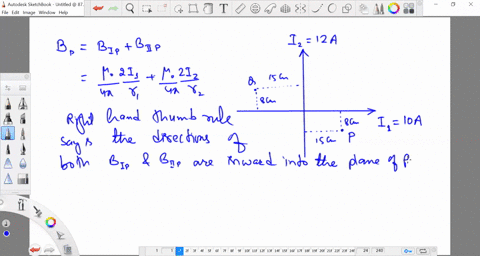 Autodesk SketchBook - Untitled @ 87.
B_P = B_IP + B_IIP
= μ₀/4π 2I₁/r₁ + μ₀/4π 2I₂/r₂
Right hand thumb rule
says the directions of
both B_IP & B_IIP are inward into the plane of P
I₂ = 12A
15cm
Q
8cm
8cm
I₁ = 10A
15cm
P